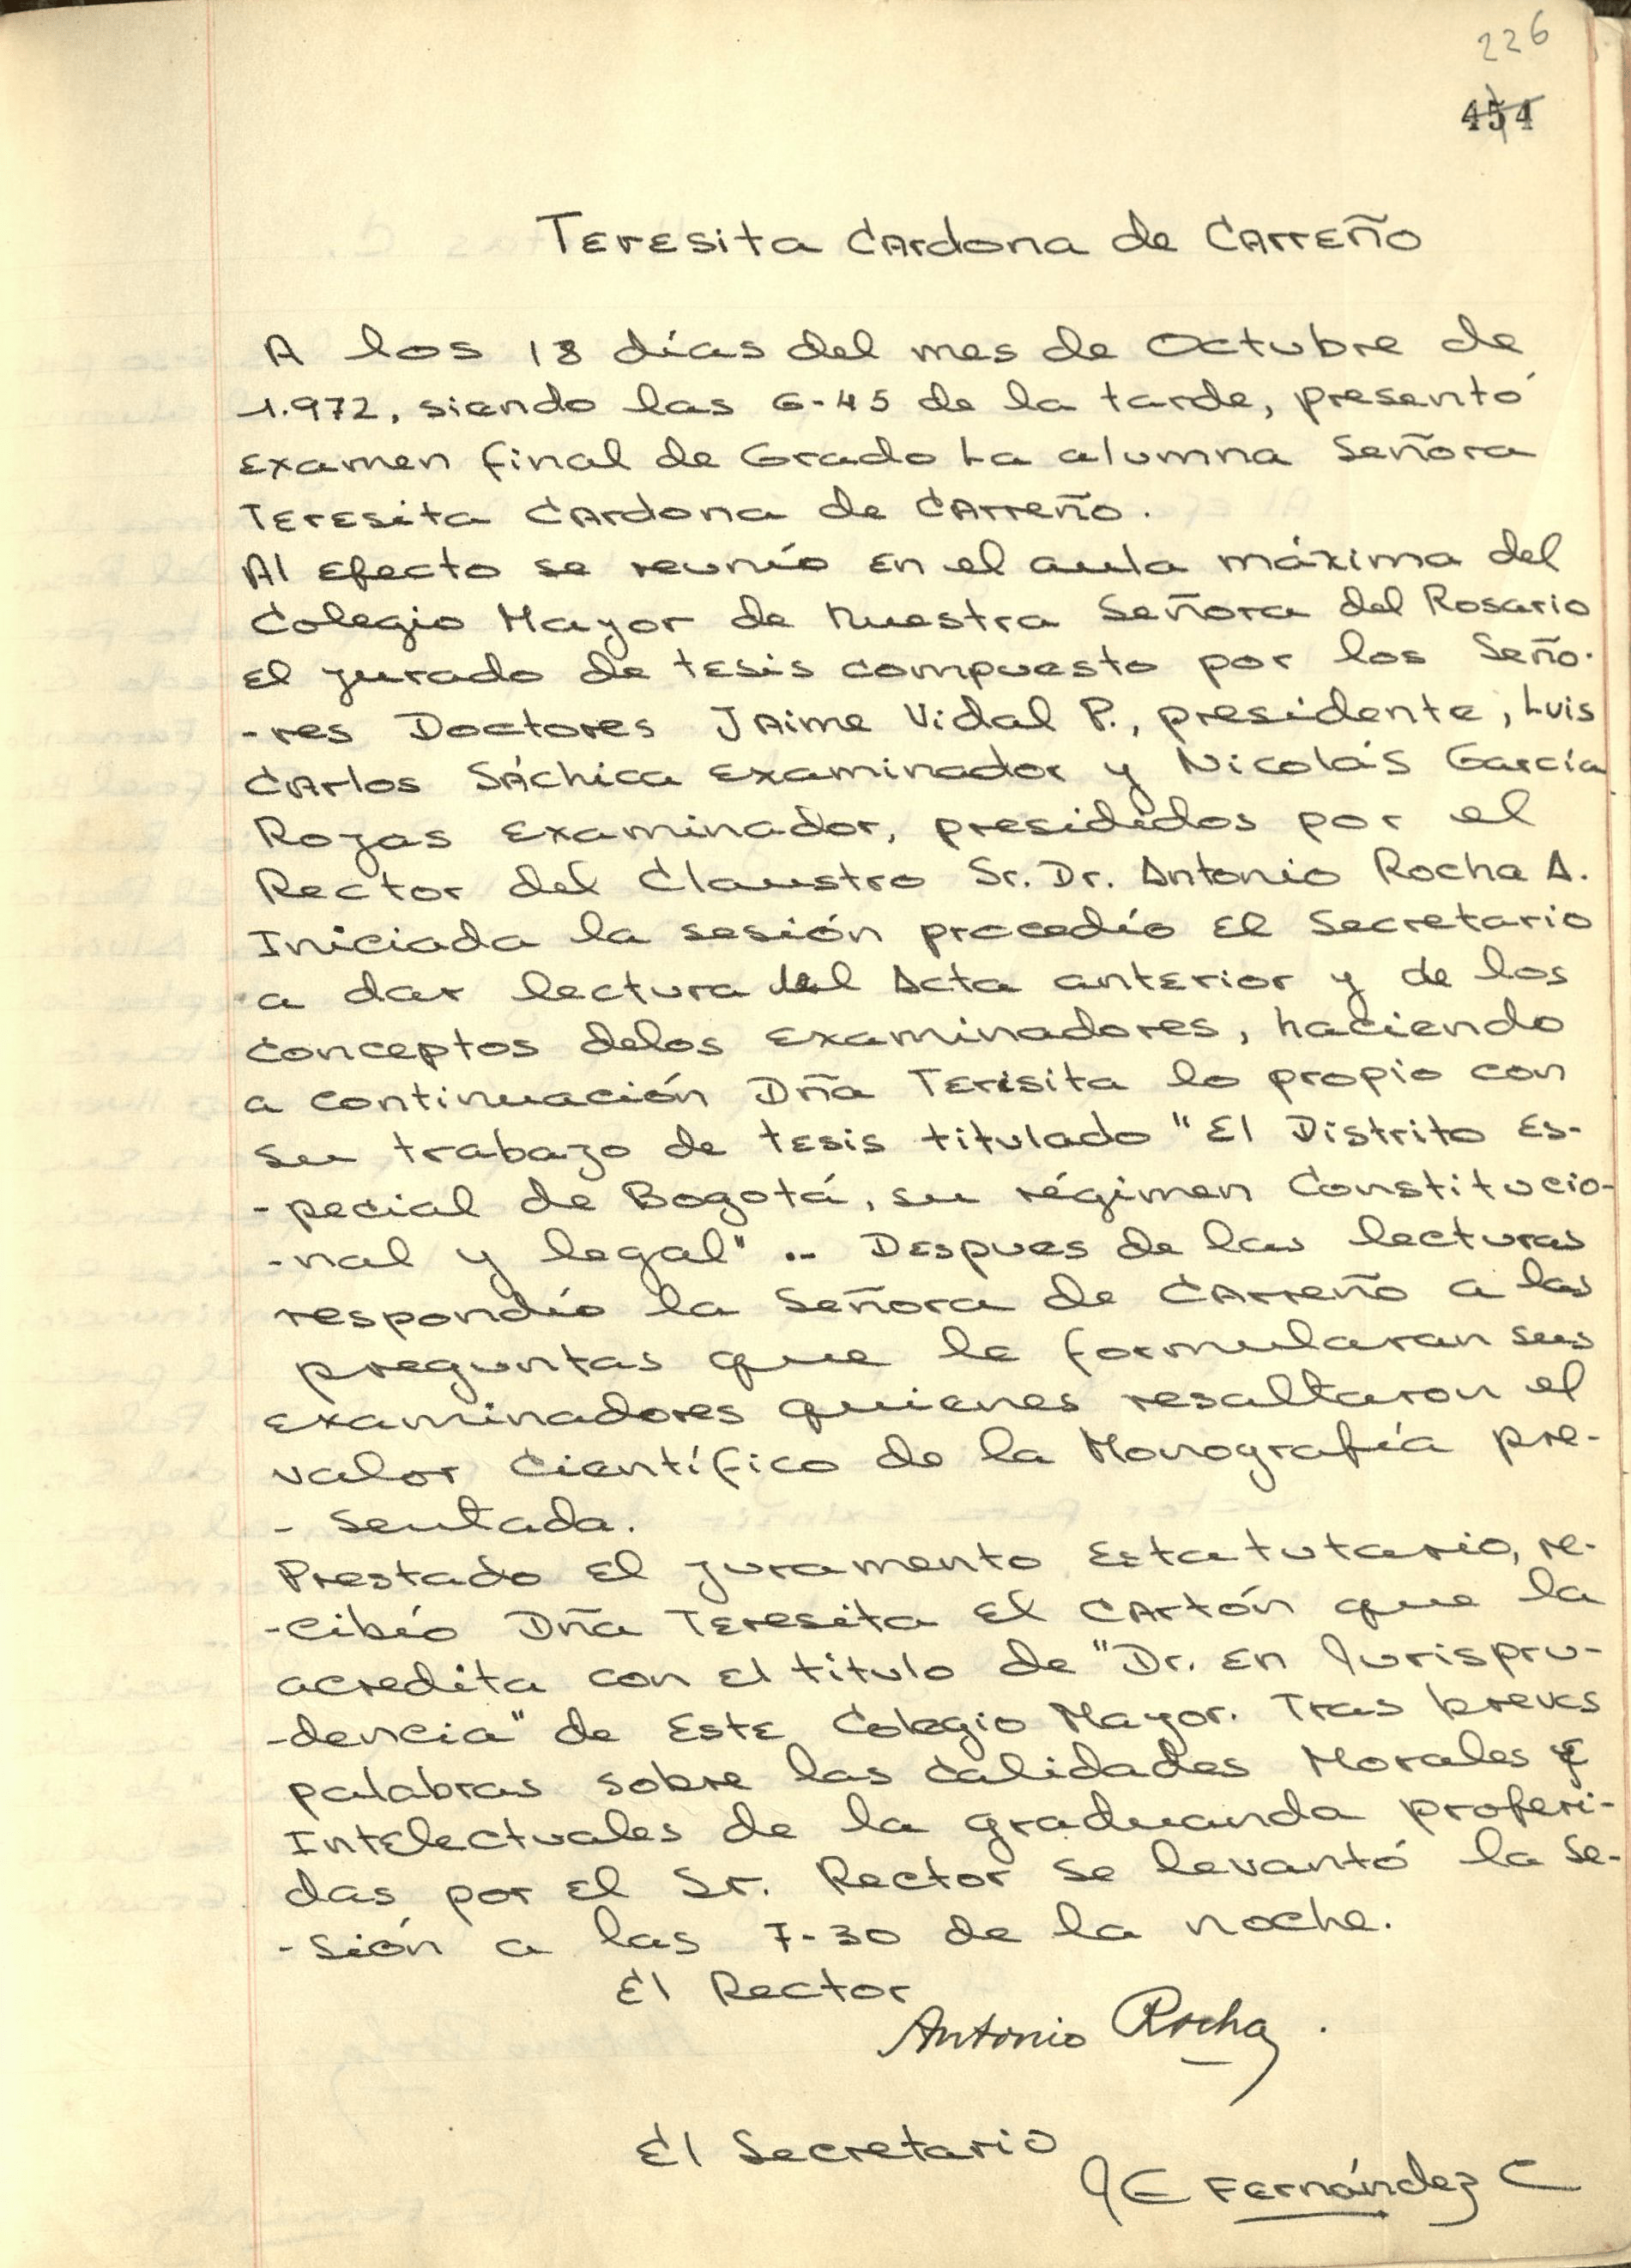 226
454
Teresita Cardona de Carreño
A los 18 días del mes de Octubre de
1.972, siendo las 6-45 de la tarde, presentó
examen final de Grado La alumna Señora
Teresita Cardona de Carreño.
Al efecto se reunío en el aula máxima del
Colegio Mayor de Nuestra Señora del Rosario
el jurado de tesis compuesto por los Seño-
-res Doctores Jaime Vidal P., presidente, Luis
Carlos Sáchica examinador y Nicolás García
Rojas examinador, presididos por el
Rector del Claustro Sr. Dr. Antonio Rocha A.
Iniciada la sesión procedío el Secretario
a dar lectura del Acta anterior y de los
conceptos delos examinadores, haciendo
a continuación Dña Terisita lo propio con
su trabajo de tesis titulado "El Distrito Es-
-pecial de Bogotá, su régimen Constitucio-
-nal y legal" .- Despues de las lecturas
respondío la Señora de Carreño a las
preguntas que le formularan sus
examinadores quienes resaltaron el
valor Científico de la Monografía pre-
- sentada.
Prestado el juramento Estatutario, re-
-cibío Dña Teresita el Cartón que la
acredita con el titulo de "Dr. en Jurispru-
-dencia" de Este Colegio Mayor. Tras breves
palabras sobre las Calidades Morales e
Intelectuales de la graduanda proferi-
das por el Sr. Rector se levantó la Se-
-sión a las 7-30 de la noche.
El Rector
Antonio Rocha.
El Secretario
JE Fernández C